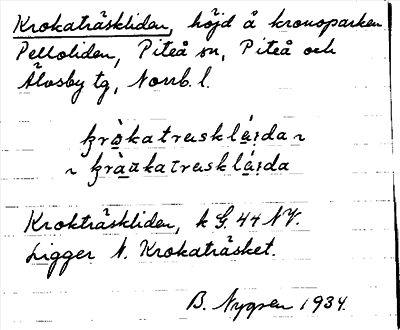 Krokaträskliden, höjd å kronoparken
Pelloliden, Piteå sn, Piteå och
Älvsby tg, Norrb. l.
kròkatraskláida ~
~ kràukatraskláida
Krokträskliden, k G. 44 NV.
Ligger N. Krokaträsket.
B. Nygren 1934.